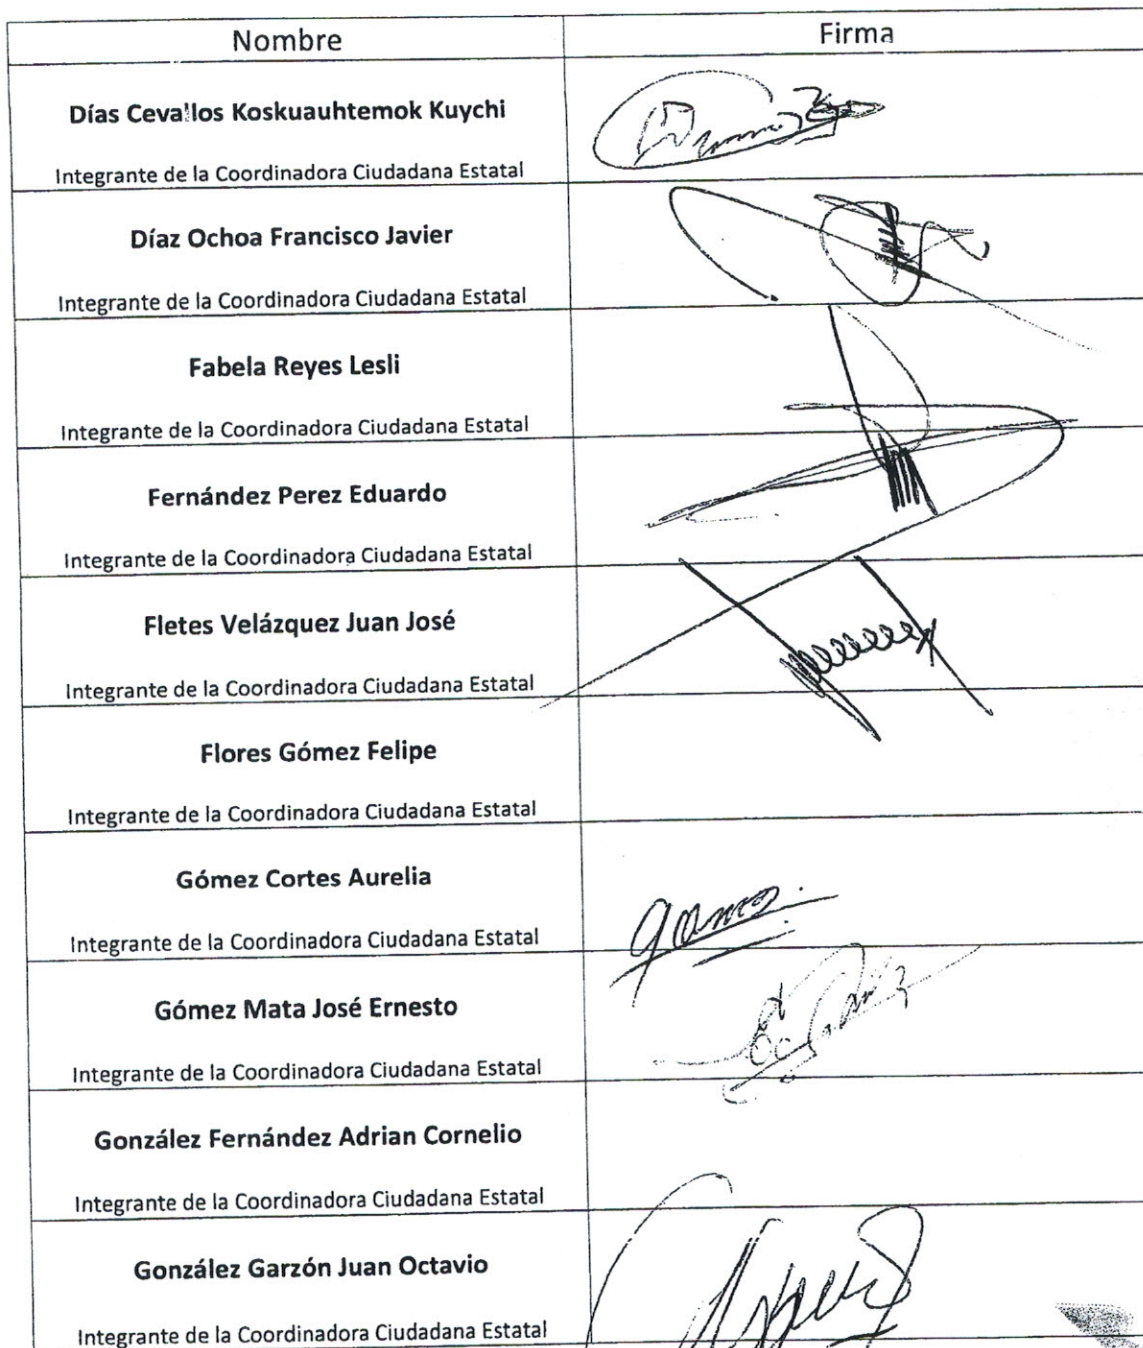 Nombre
Firma
Días Cevallos Koskuauhtemok Kuychi
Integrante de la Coordinadora Ciudadana Estatal
Díaz Ochoa Francisco Javier
Integrante de la Coordinadora Ciudadana Estatal
Fabela Reyes Lesli
Integrante de la Coordinadora Ciudadana Estatal
Fernández Perez Eduardo
Integrante de la Coordinadora Ciudadana Estatal
Fletes Velázquez Juan José
Integrante de la Coordinadora Ciudadana Estatal
Flores Gómez Felipe
Integrante de la Coordinadora Ciudadana Estatal
Gómez Cortes Aurelia
Integrante de la Coordinadora Ciudadana Estatal
Gómez Mata José Ernesto
Integrante de la Coordinadora Ciudadana Estatal
González Fernández Adrian Cornelio
Integrante de la Coordinadora Ciudadana Estatal
González Garzón Juan Octavio
Integrante de la Coordinadora Ciudadana Estatal